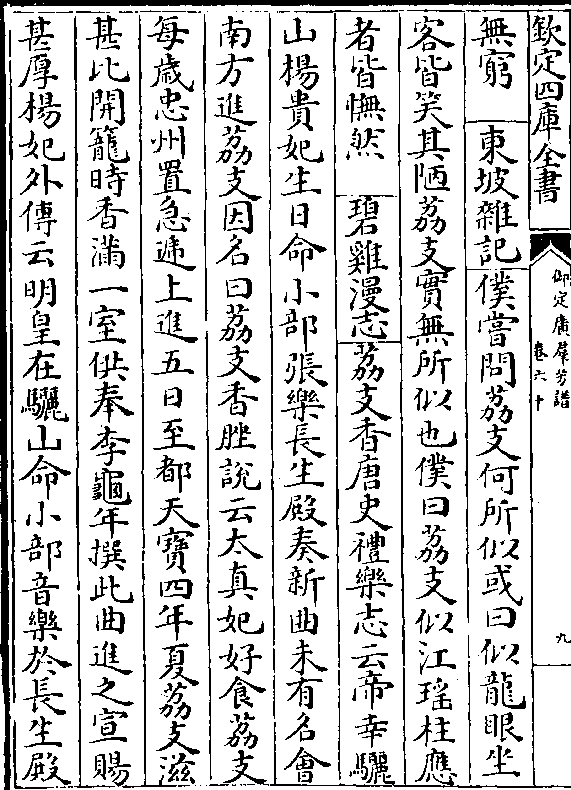 欽定四庫全書
御定廣羣芳譜
卷六十
九
無窮 東坡雜記 僕嘗問荔支何所似或曰似龍眼坐
客皆笑其陋荔支實無所似也僕曰荔支似江瑶柱應
者皆憮然 碧雞漫志 荔支香唐史禮樂志云帝幸驪
山楊貴妃生日命小部張樂長生殿奏新曲未有名會
南方進荔支因名曰荔支香脞說云太真妃好食荔支
每歲忠州置急遞上進五日至都天寶四年夏荔支滋
甚比開籠時香滿一室供奉李龜年撰此曲進之宣賜
甚厚楊妃外傳云明皇在驪山命小部音樂於長生殿